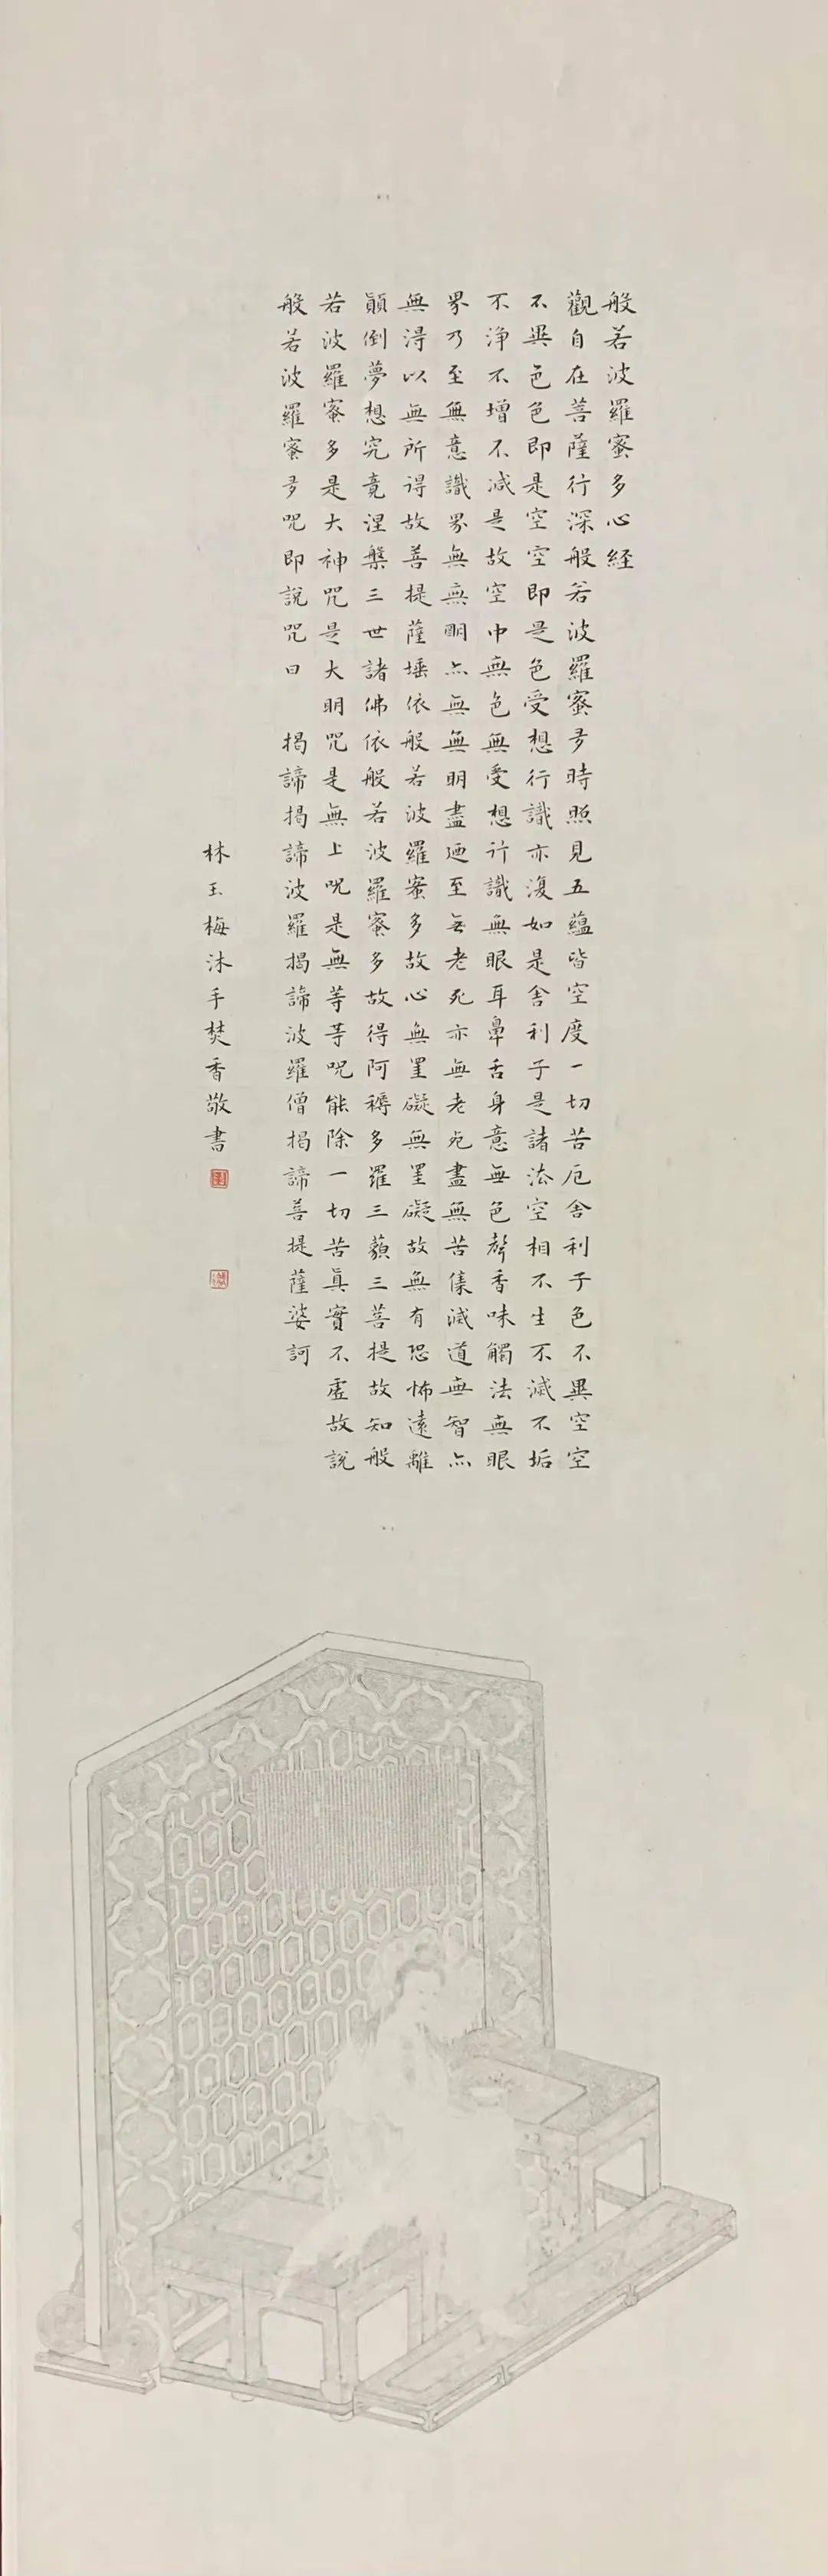 般若波羅蜜多心経
觀自在菩薩行深般若波羅蜜多時照見五蘊皆空度一切苦厄舍利子色不異空空
不異色色即是空空即是色受想行識亦復如是舍利子是諸法空相不生不滅不垢
不淨不增不減是故空中無色無受想行識無眼耳鼻舌身意無色聲香味觸法無眼
界乃至無意識界無無明亦無無明盡廼至无老死亦無老死盡無苦集滅道無智亦
無得以無所得故菩提薩埵依般若波羅蜜多故心無罣礙無罣礙故無有恐怖遠離
顛倒夢想究竟涅槃三世諸佛依般若波羅蜜多故得阿耨多羅三藐三菩提故知般
若波羅蜜多是大神咒是大明咒是無上咒是無等等咒能除一切苦真實不虛故說
般若波羅蜜多咒即說咒曰 揭諦揭諦波羅揭諦波羅僧揭諦菩提薩婆訶
林玉梅沐手焚香敬書